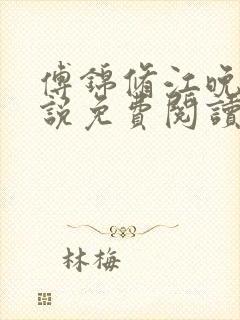 傅錦脩江晚
說免費閱讀
林梅